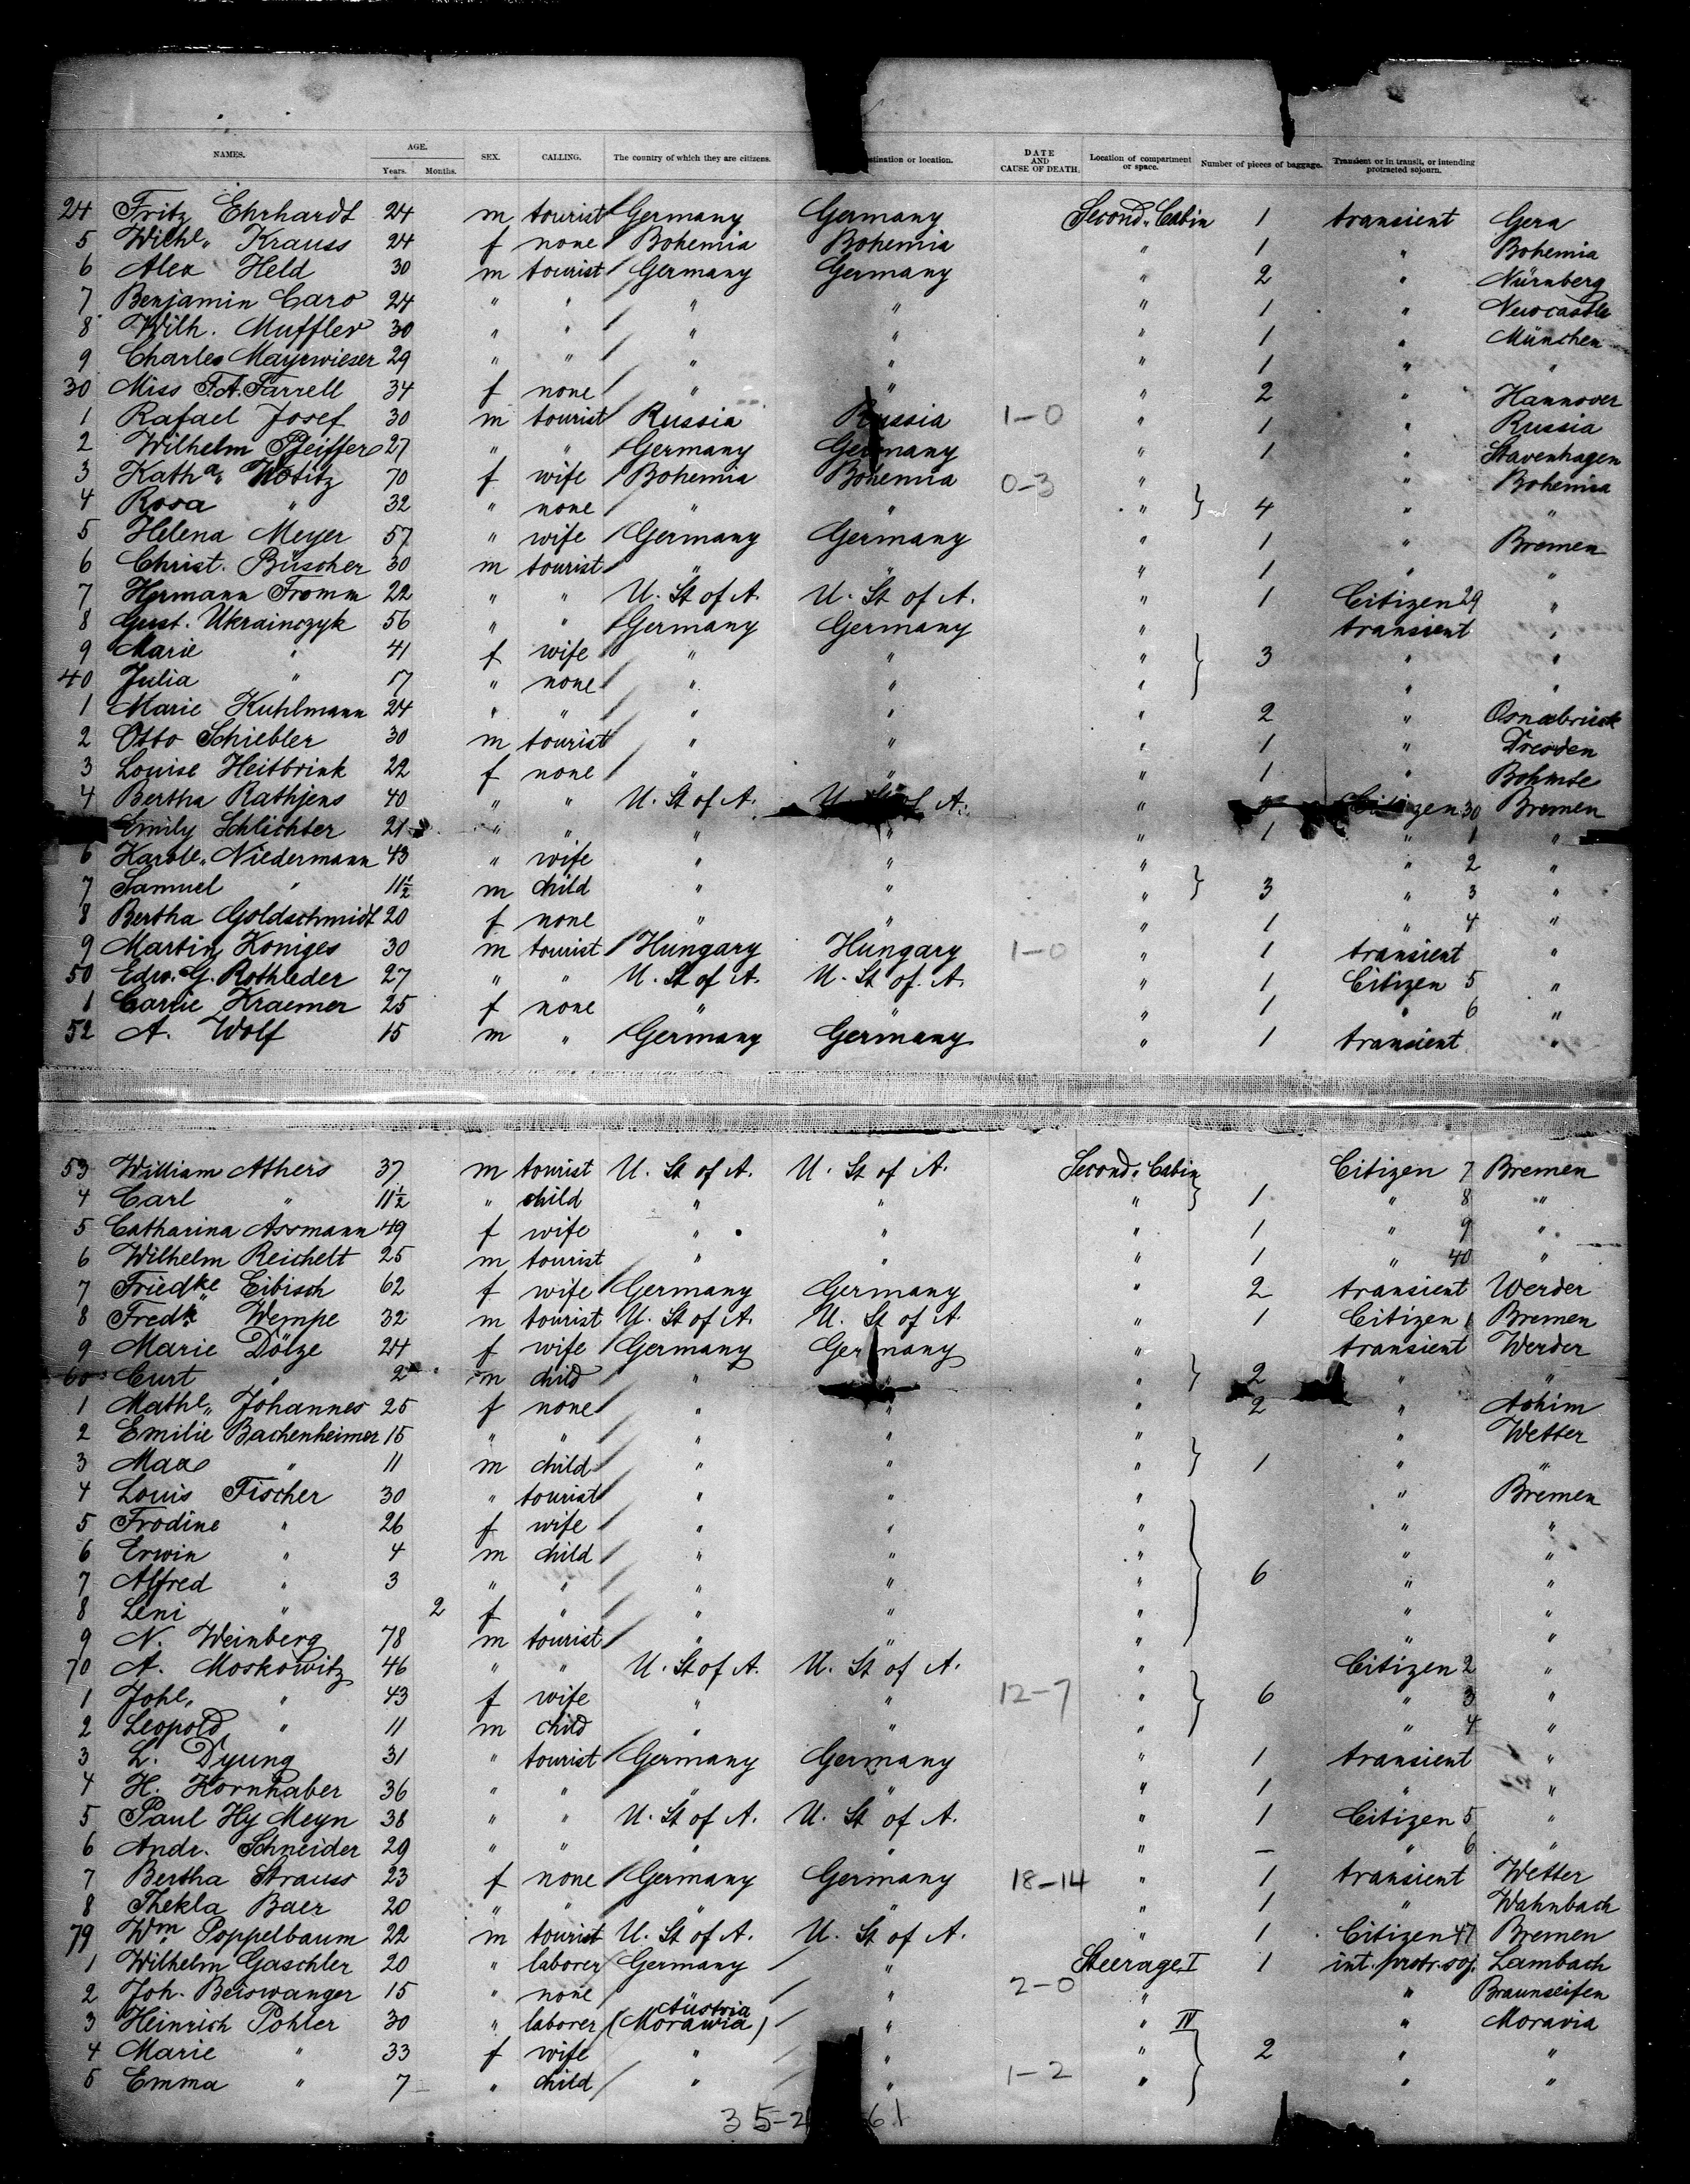 NAMES. AGE. Years. Months. SEX. CALLING. The country of which they are citizens. stination or location. DATE AND CAUSE OF DEATH. Location of compartment or space. Number of pieces of baggage. Transient or in transit, or intending protracted sojourn.
24 Fritz Ehrhardt 24 m tourist Germany Germany Second. Cabin 1 transient Gera
5 Wilhl. Krauss 24 f none Bohemia Bohemia " 1 " Bohemia
6 Alex Held 30 m tourist Germany Germany " 2 " Nürnberg
7 Benjamin Caro 24 " " " " " 1 " Newcastle
8 Wilh. Muffler 30 " " " " " 1 " München
9 Charles Mayrwieser 29 " " " " " 1 " "
30 Miss F.A. Farrell 34 f none " " " 2 " Hannover
1 Rafael Josef 30 m tourist Russia Russia 1-0 " 1 " Russia
2 Wilhelm Pfeiffer 27 " " Germany Germany " 1 " Stavenhagen
3 Katha. Wotitz 70 f wife Bohemia Bohemia 0-3 " " Bohemia
4 Rosa " 32 " none " " " } 4 " "
5 Helena Meyer 57 " wife Germany Germany " 1 " Bremen
6 Christ. Büscher 30 m tourist " " " 1 " "
7 Hermann Fromm 22 " " U. St of A. U. St of A. " 1 Citizen 29 "
8 Gust. Ukrainczyk 56 " " Germany Germany " transient "
9 Marie " 41 f wife " " " } 3 " "
40 Julia " 17 " none " " " " "
1 Marie Kuhlmann 24 " " " " " 2 " Osnabrück
2 Otto Schiebler 30 m tourist " " " 1 " Dresden
3 Louise Heitbrink 22 f none " " " 1 " Bohmte
4 Bertha Rathjens 40 " " U. St of A. U. St of A. " Citizen 30 Bremen
Emily Schlichter 21 " " " " " 1 " 1 "
6 Karole. Niedermann 43 " wife " " " " 2 "
7 Samuel " 11½ m child " " " } 3 " 3 "
8 Bertha Goldschmidt 20 f none " " " 1 " 4 "
9 Martin Koniges 30 m tourist Hungary Hungary 1-0 " 1 transient "
50 Edw. G. Rothleder 27 " " U. St of A. U. St of. A. " 1 Citizen 5 "
1 Carrie Kraemer 25 f none " " " 1 " 6 "
52 A. Wolf 15 m " Germany Germany " 1 transient "
53 William Athers 37 m tourist U. St of A. U. St of A. Second. Cabin Citizen 7 Bremen
4 Carl " 11½ " child " " " } 1 " 8 "
5 Catharina Assmann 49 f wife " " " 1 " 9 "
6 Wilhelm Reichelt 25 m tourist " " " 1 " 40 "
7 Friedke Eibisch 62 f wife Germany Germany " 2 transient Werder
8 Fredk Wempe 32 m tourist U. St of A. U. St of A. " 1 Citizen 1 Bremen
9 Marie Dölze 24 f wife Germany Germany " transient Werder
60 Curt " 2 m child " " " } 2 " "
1 Mathl. Johannes 25 f none " " " 2 " Achim
2 Emilie Bachenheimer 15 " " " " " " Wetter
3 Max " 11 m child " " " } 1 " "
4 Louis Fischer 30 " tourist " " " " Bremen
5 Frodine " 26 f wife " " " " "
6 Erwin " 4 m child " " " " "
7 Alfred " 3 " " " " " } 6 " "
8 Leni " 2 f " " " " " "
9 N. Weinberg 78 m tourist " " " " "
70 A. Moskowitz 46 " " U. St of A. U. St of A. " Citizen 2 "
1 Johl. " 43 f wife " " 12-7 " } 6 " 3 "
2 Leopold " 11 m child " " " " 4 "
3 L. Dyung 31 " tourist Germany Germany " 1 transient "
4 H. Kornhaber 36 " " " " " 1 " "
5 Paul Hy Meyn 38 " " U. St of A. U. St of A. " 1 Citizen 5 "
6 Andr. Schneider 29 " " " " " — " 6 "
7 Bertha Strauss 23 f none Germany Germany 18-14 " 1 transient Wetter
8 Thekla Baer 20 " " " " " 1 " Wahnbach
79 Wm. Poppelbaum 22 m tourist U. St of A. U. St of A. " 1 Citizen 47 Bremen
1 Wilhelm Gaschler 20 " laborer Germany " Steerage I 1 int. protr. soj. Lambach
2 Joh. Beiswanger 15 " none " " 2-0 " " Braunseifen
3 Heinrich Pohler 30 " laborer Austria (Morawia) " " IV " Moravia
4 Marie " 33 f wife " " " } 2 " "
5 Emma " 7 " child " " 1-2 " " "
35-2 61